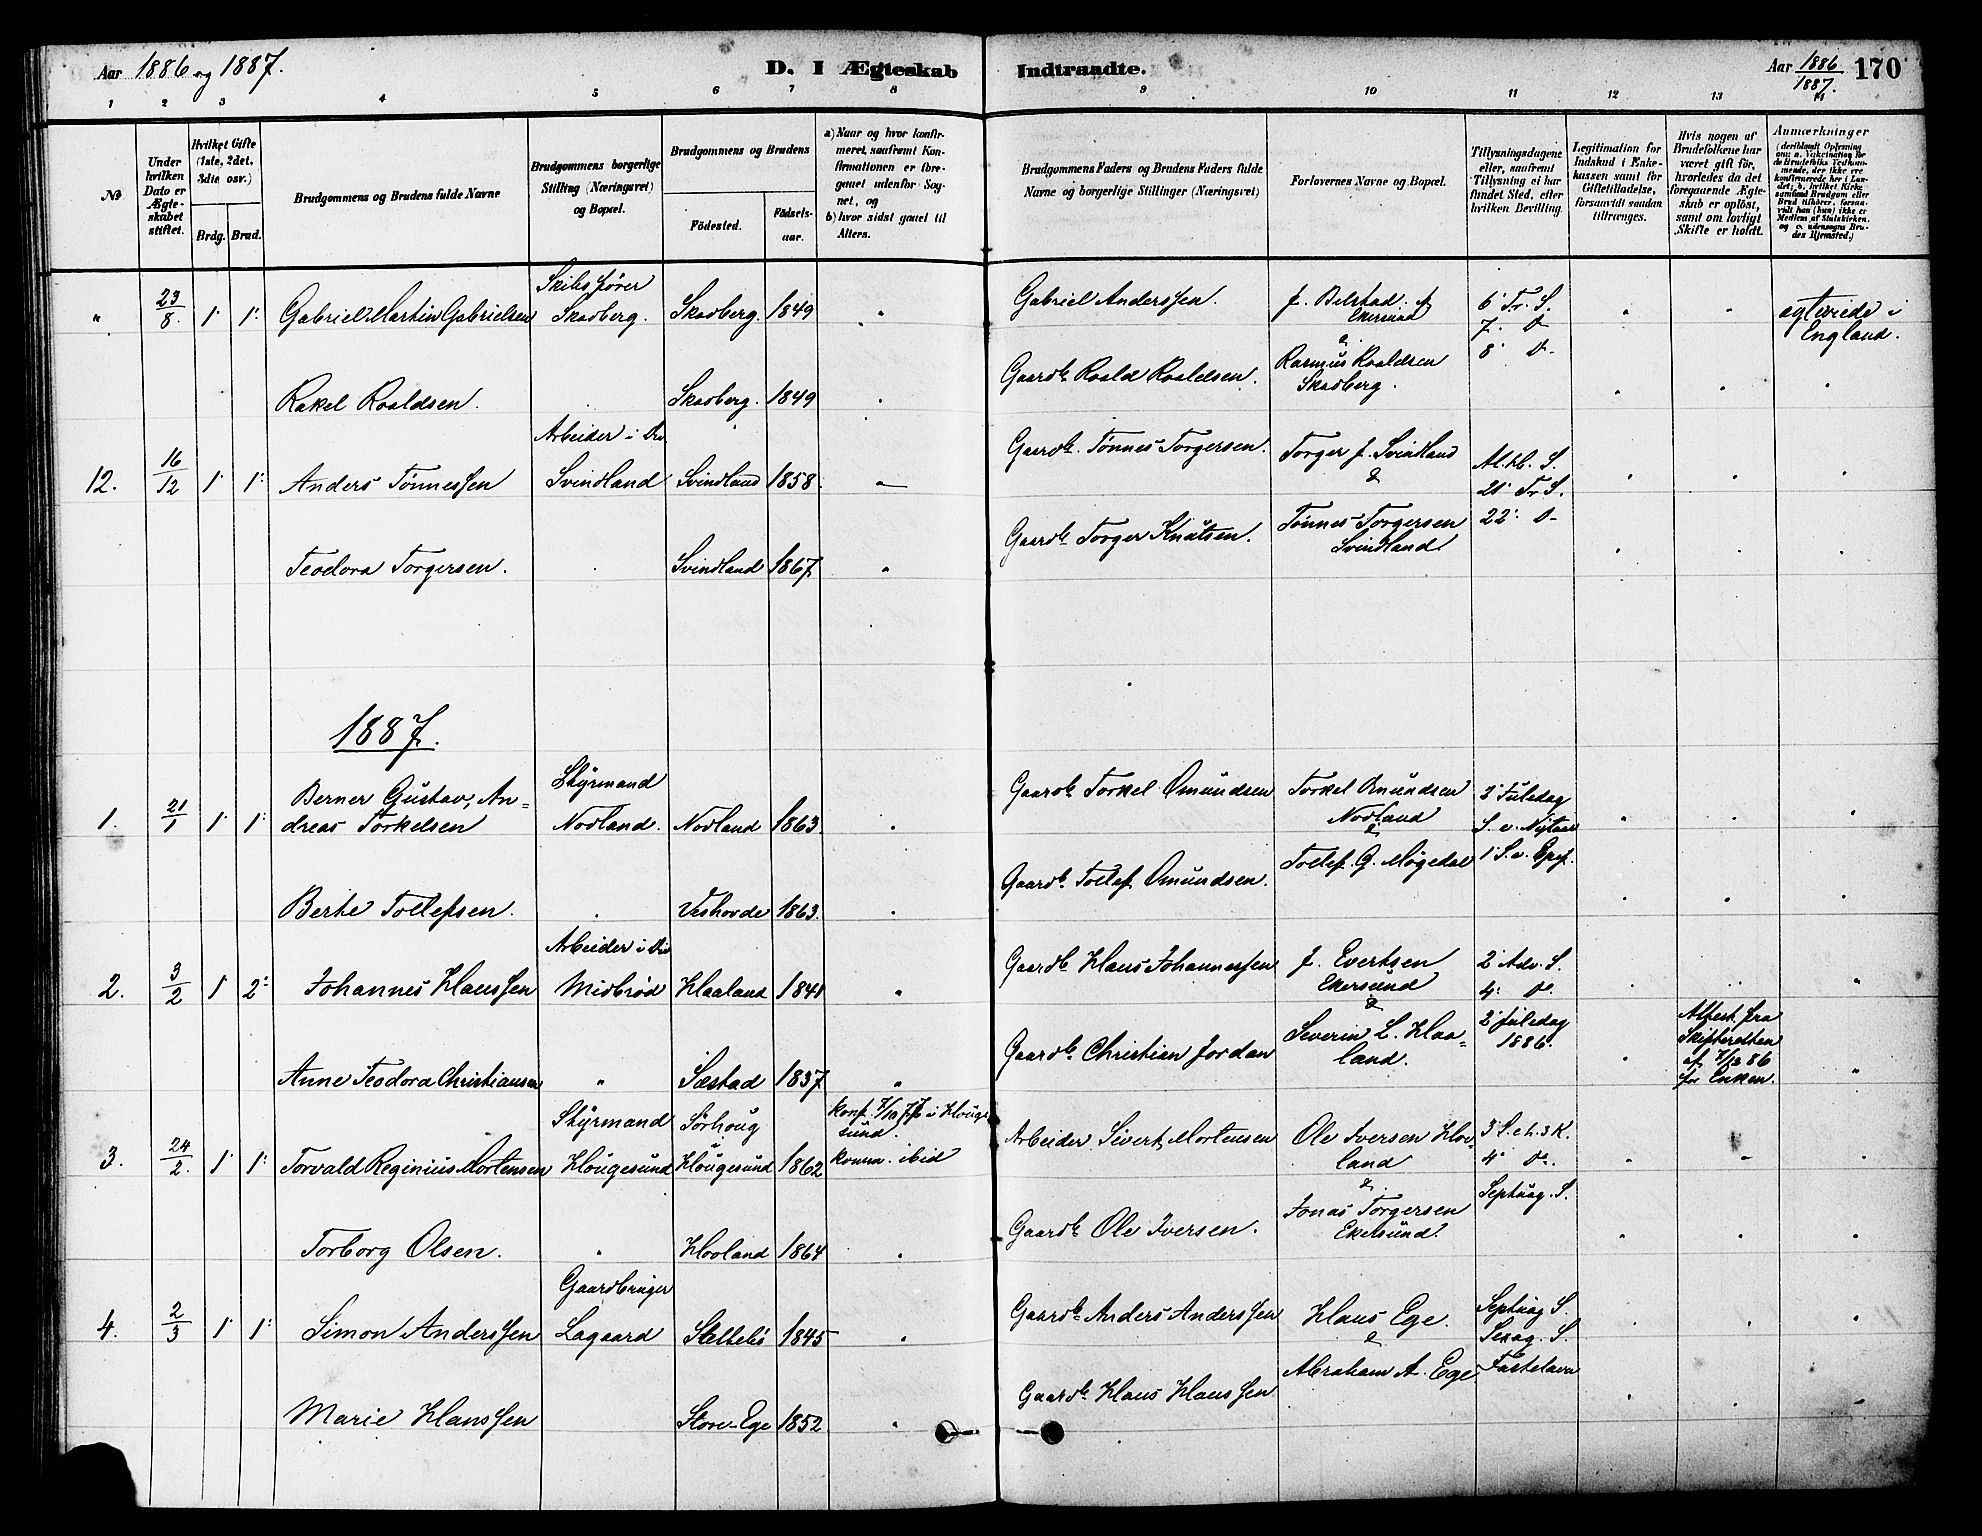 Aar 1886 og 1887.
D. I Ægteskab Indtraadte.
Aar 1886/1887. 170
1 2 3 4 5 6 7 8 9 10 11 12 13 14
No
Under hvilken Dato er Ægteskabet stiftet.
Hvilket Gifte (1ste, 2det, 3die osv.)
Brdg. Brud.
Brudgommens og Brudens fulde Navne
Brudgommens borgerlige Stilling (Næringsvei) og Bopæl.
Brudgommens og Brudens
Födested. Födselsaar.
a) Naar og hvor konfirmeret, saafremt Konfirmationen er foregaaet udenfor Sognet, og
b) hvor sidst gaaet til Alters.
Brudgommens Faders og Brudens Faders fulde Navne og borgerlige Stillinger (Næringsvei)
Forlovernes Navne og Bopæl.
Tillysningsdagene eller, saafremt Tillysning ei har fundet Sted, efter hvilken Bevilling.
Legitimation for Indskud i Enkekassen samt for Giftetilladelse, forsaavidt saadan tiltrænges.
Hvis nogen af Brudefolkene har været gift för, hvorledes da det foregaaende Ægteskab er oplöst, samt om lovligt Skifte er holdt.
Anmærkninger (deriblandt Oplysning om: a. Vakcination for de Brudefolks Vedkommende, der ikke ere konfirmerede her i Landet; b. hvilket Kirkesamfund Brudgom eller Brud tilhörer, forsaavidt han (hun) ikke er Medlem af Statskirken, og c. udensogns Brudes Hjemsted.)
". 23/8. 1. 1. Gabriel Martin Gabrielsen Skibsfører Skadberg. Skadberg. 1849 " Gabriel Anderssen. J. Belstad. Ekersund & 6. Tr. S. 7. D- 8. D- " " ægtviede i England.
Rakel Roaldsen. Skadberg. 1849 " Gaardb. Roald Roaldsen. Rasmus Roaldsen Skadberg. " " "
12. 16/12 1. 1. Anders Tønnessen Arbeider i Div Svindland Svindland 1858. " Gaardb. Tønnes Torgersen. Torger J. Svindland & Al. hl. S. 21. Tr. S. 22. D- " " "
Teodora Torgersen. Svindland 1867. " Gaardb. Torger Knutsen. Tønnes Torgersen Svindland " " "
1887.
1. 21/1 1. 1. Berner Gustav, Andreas Torkelsen Styrmand Nodland. Nodland 1863. " Gaardb. Torkel Omundsen Torkel Omundsen Nodland & 2. Juledag S. e. Nytaar 1. S. e. Epif. " " "
Berte Tollefsen. Veshovde 1863. " Gaardb. Tollef Omundsen. Tollef G. Møgedal " " "
2. 3/2 1. 2. Johannes Klaussen Arbeider i Div Midbrød Klaaland 1841 " Gaardb. Klaus Johannessen J. Evertsen Ekersund & 2. Adv. S. 4. D. 2. Juledag 1886. " " "
Anne Teodora Christiansen " Sæstad 1837 " Gaardb. Christian Jordan Severin L. Klaaland. " Attest fra Skifteretten af 7/12 86 for Enken. "
3. 24/2. 1. 1. Torvald Reginius Mortensen Styrmand Hougesund Sørhoug i Hougesund 1862 konf. 7/10 77 i Hougesund. komm. ibid Arbeider Sivert Mortensen Ole Iversen Hovland & 3. S. e. h. 3 K. 4. D. Septuag. S. " " "
Torborg Olsen. " Hovland 1864 " Gaardb. Ole Iversen. Jonas Torgersen Ekersund. " " "
4. 2/3 1. 1. Simon Anderssen Gaardbruger Lagaard 1845 " Gaardb. Anders Anderssen Klaus Ege. & Septuag. S. Sexag. S. Fastelavn " " "
Marie Klaussen Store-Ege 1852 " Gaardb. Klaus Klaussen Abraham A. Ege " "